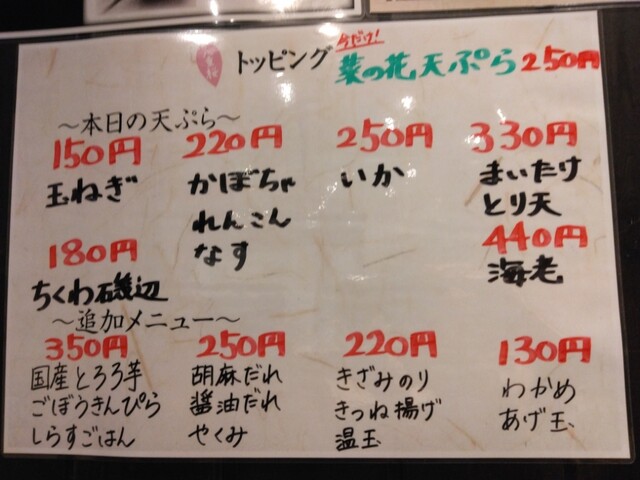 トッピング
今だけ!
菜の花天ぷら250円
～本日の天ぷら～
150円
玉ねぎ
180円
ちくわ磯辺
220円
かぼちゃ
れんこん
なす
250円
いか
330円
まいたけ
とり天
440円
海老
～追加メニュー～
350円
国産とろろ芋
ごぼうきんぴら
しらすごはん
250円
胡麻だれ
醤油だれ
やくみ
220円
きざみのり
きつね揚げ
温玉
130円
わかめ
あげ玉